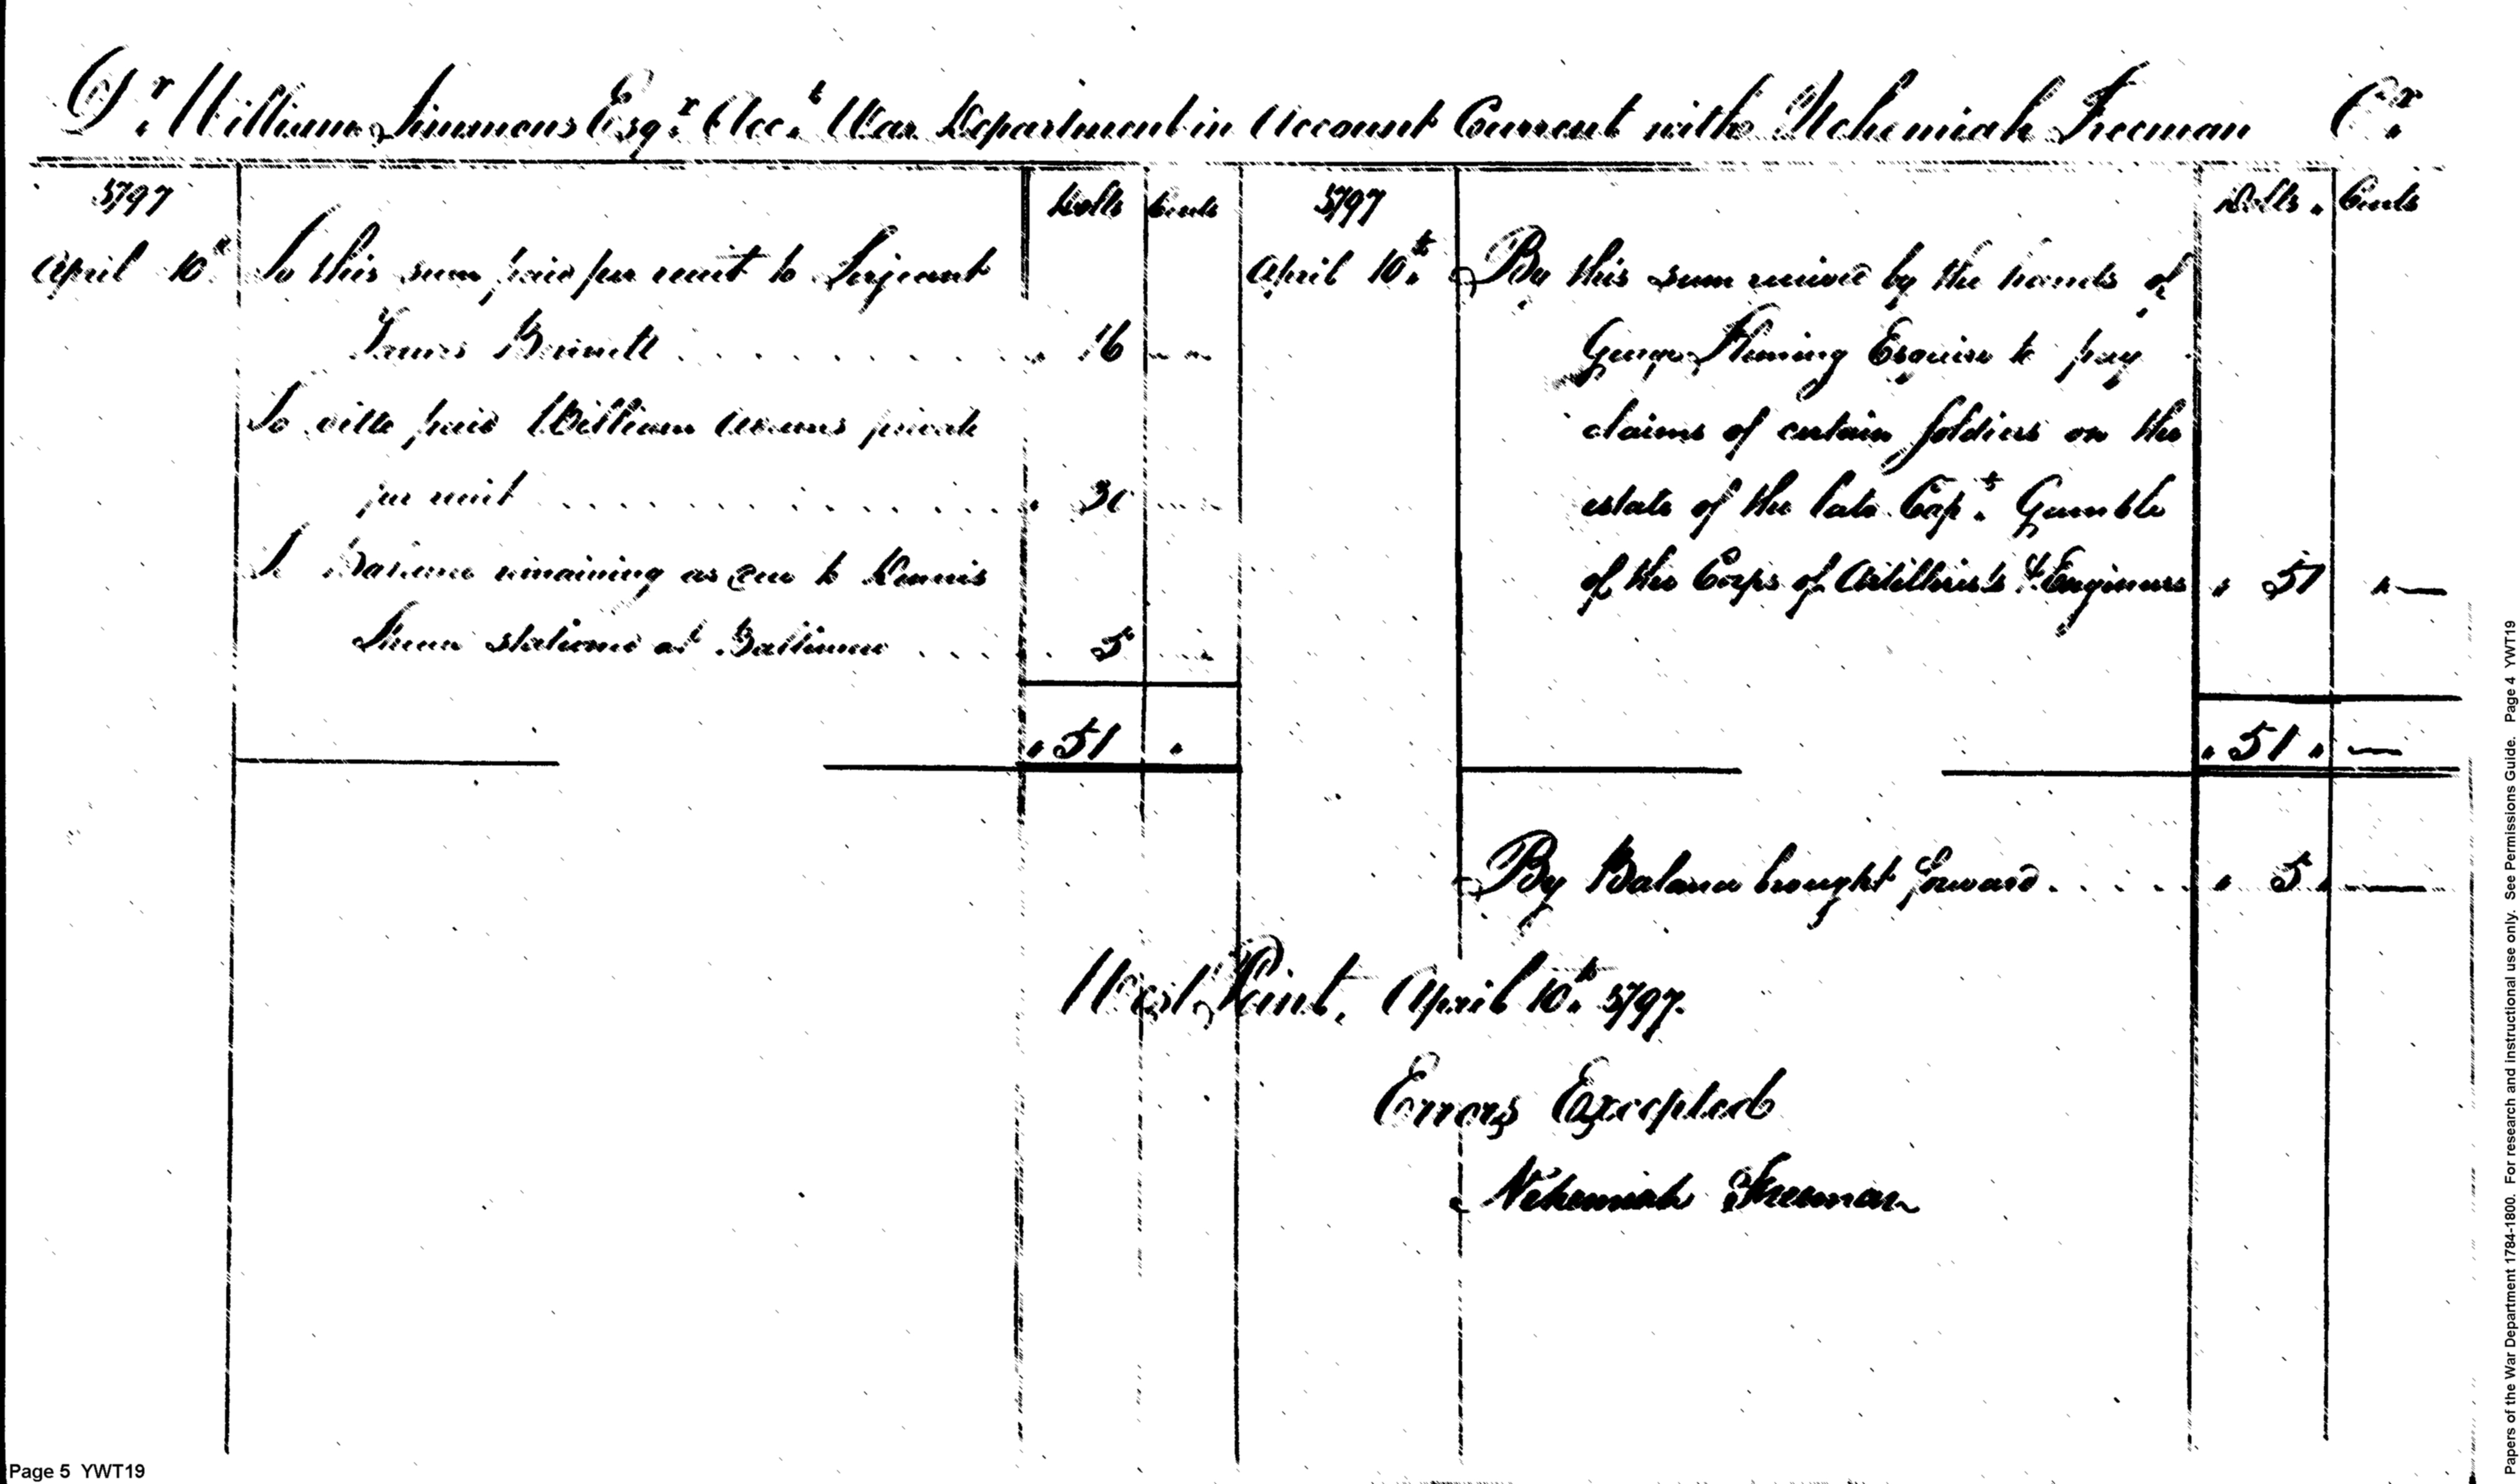 Dr. William Simmons Esqr. Acct. War Department in Account Current with Nehemiah Freeman Cr.
1797 Dolls Cents
April 10th To this sum paid per receipt to Serjeant
James . . . . . . . . 16
To ditto paid William private
per receipt . . . . . . . . 30
To Balance remaining as due to Dennis
stationed at Baltimore . . . . 5
51
1797 Dolls. Cents
April 10th. By this sum received by the hands of
George Fleming Esquire to pay
claims of certain soldiers on the
estate of the late Capt. Gamble
of the Corps of Artillerists & Engineers 51 —
51. —
By Balance brought forward . . . . 5. —
West Point, April 10th. 1797.
Errors Excepted
Nehemiah Freeman
Page 5 YWT19
Papers of the War Department 1784-1800. For research and instructional use only. See Permissions Guide. Page 4 YWT19